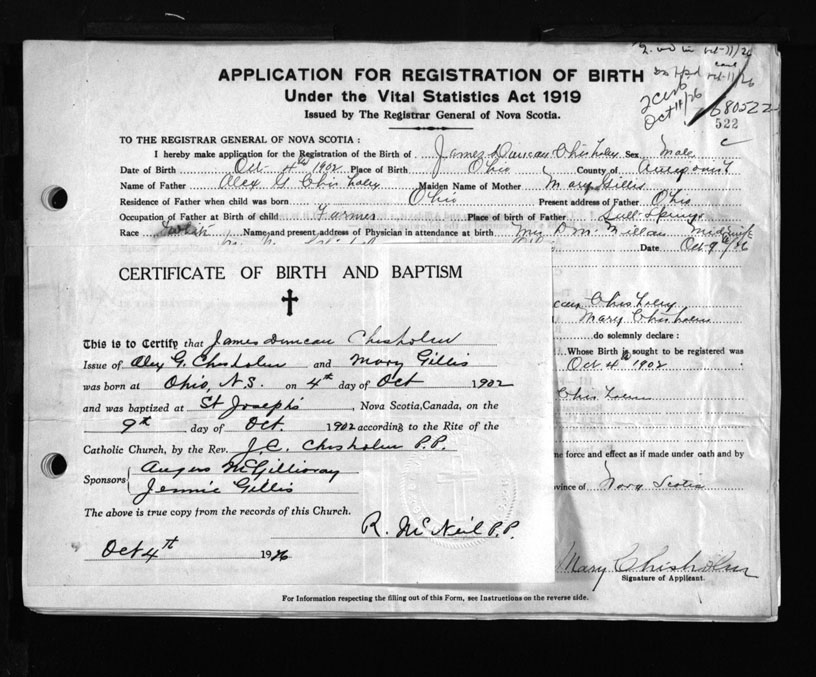 APPLICATION FOR REGISTRATION OF BIRTH
Under the Vital Statistics Act 1919
Issued by The Registrar General of Nova Scotia.
Oct 11/26
680522
522
TO THE REGISTRAR GENERAL OF NOVA SCOTIA :
I hereby make application for the Registration of the Birth of James Duncan Chisholm Sex Male
Date of Birth Oct 4th 1902 Place of Birth Ohio County of Antigonish
Name of Father Alex G Chisholm Maiden Name of Mother Mary Gillis
Residence of Father when child was born Ohio Present address of Father Ohio
Occupation of Father at Birth of child Farmer Place of birth of Father Springs
Race White Name and present address of Physician in attendance at birth Mrs D McMillan Midwife
Date Oct 9th/26
CERTIFICATE OF BIRTH AND BAPTISM
This is to Certify that James Duncan Chisholm
Issue of Alex G. Chisholm and Mary Gillis
was born at Ohio, N.S. on 4th day of Oct 1902
and was baptized at St Joseph's, Nova Scotia, Canada, on the
9th day of Oct. 1902 according to the Rite of the
Catholic Church, by the Rev. J.C. Chisholm P.P.
Sponsors Angus McGillivray
Jennie Gillis
The above is true copy from the records of this Church.
R. McNeil P.P.
Oct 4th 1926
Chisholm
Mary Chisholm
do solemnly declare :
Whose Birth is sought to be registered was
Oct 4th 1902
Chisholm
me force and effect as if made under oath and by
vince of Nova Scotia
Mary Chisholm
Signature of Applicant.
For Information respecting the filling out of this Form, see Instructions on the reverse side.